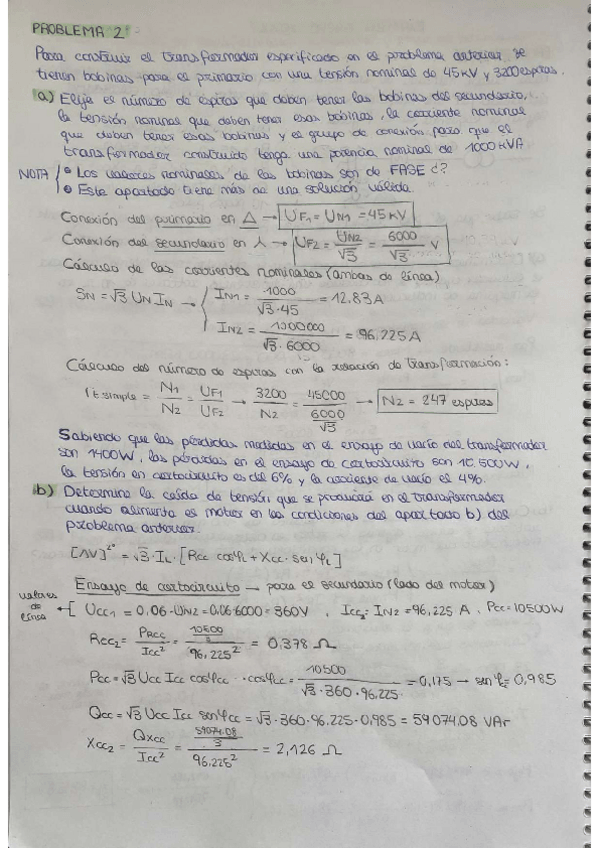 PROBLEMA 2
Para construir el transformador especificado en el problema anterior se
tienen bobinas para el primario con una tensión nominal de 45 kV y 3200 espiras.
a) Elija el número de espiras que deben tener las bobinas del secundario,
la tensión nominal que deben tener esas bobinas, la corriente nominal
que deben tener esas bobinas y el grupo de conexión para que el
transformador construido tenga una potencia nominal de 1000 kVA
NOTA • Los valores nominales de las bobinas son de FASE ¿?
• Este apartado tiene más de una solución válida
Conexión del primario en △ → UF1 = UN1 = 45 KV
Conexión del secundario en 人 → UF2 = UN2/√3 = 6000/√3 V
Cálculo de las corrientes nominales (ambas de línea)
SN = √3 UN IN → { IN1 = 1000/(√3·45) = 12,83 A
IN2 = 1000000/(√3·6000) = 96,225 A
Cálculo del número de espiras con la relación de transformación:
rt simple = N1/N2 = UF1/UF2 → 3200/N2 = 45000/(6000/√3) → N2 = 247 espiras
Sabiendo que las pérdidas medidas en el ensayo de vacío del transformador
son 1400W, las pérdidas en el ensayo de cortocircuito son 10.500W,
la tensión en cortocircuito es del 6% y la corriente de vacío el 4%.
b) Determine la caída de tensión que se producirá en el transformador
cuando alimenta el motor en las condiciones del apartado b) del
problema anterior.
[ΔV]²ᵒ = √3 · IL · [Rcc cosφL + Xcc · sen φL]
Ensayo de cortocircuito → para el secundario (lado del motor)
valores de línea ← [ Ucc1 = 0,06 · UN2 = 0,06·6000 = 360V , Icc2 = IN2 = 96,225 A , Pcc = 10500W
Rcc2 = PRcc/Icc² = (10500/3)/96,225² = 0,378 Ω
Pcc = √3 Ucc Icc cosφcc · cosφcc = 10500/(√3 · 360 · 96,225) = 0,175 → sen φc = 0,985
Qcc = √3 Ucc Icc senφcc = √3 · 360 · 96,225 · 0,985 = 59074.08 VAr
Xcc2 = QXcc/Icc² = (59074.08/3)/96,225² = 2,126 Ω